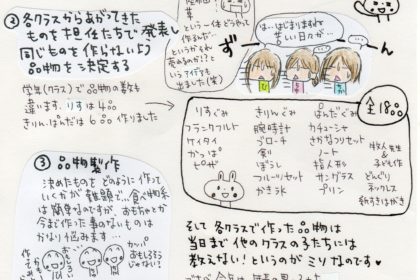 ② 各クラスからあがってきた
ものを担任たちで発表し
同じものを作らないよう
品物を決定する
学年(クラス)で品物の数も
違います。りすは4品
きりん、ぱんだは6品作りました
という一体どうやって
作るんだ…
というかくれ
出ました(笑)
は…はじまりますね
苦しい日々が…
ずーん
全18品
りすぐみ
フランクフルト
ケイタイ
かっぱ
ピザ
きりんぐみ
腕時計
ブローチ
フルーツセット
かき氷
ぱんだぐみ
カチューシャ
さかなつりセット
ノート
指人形
サングラス
プリン
牧人先生
&
子ども作
どんぐり
ネックレス
③ 品物製作
決めたものをどのように作って
いくかが難題で…食べ物系
は簡単なのですが、おもちゃとか
今まで作った事のないものは
かなり悩みます…
おもしろそう
じゃない?
そして各クラスで作った品物は
当日まで他のクラスの子たちには
教えない!というのがミソなのです♥